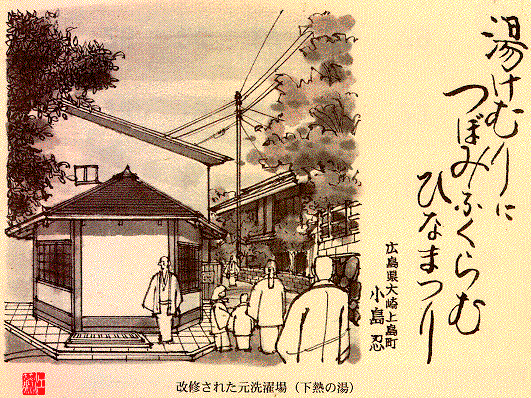 湯けむりに
つぼみふくらむ
ひなまつり
広島県大崎上島町
小島 忍
改修された元洗濯場（下熱の湯）